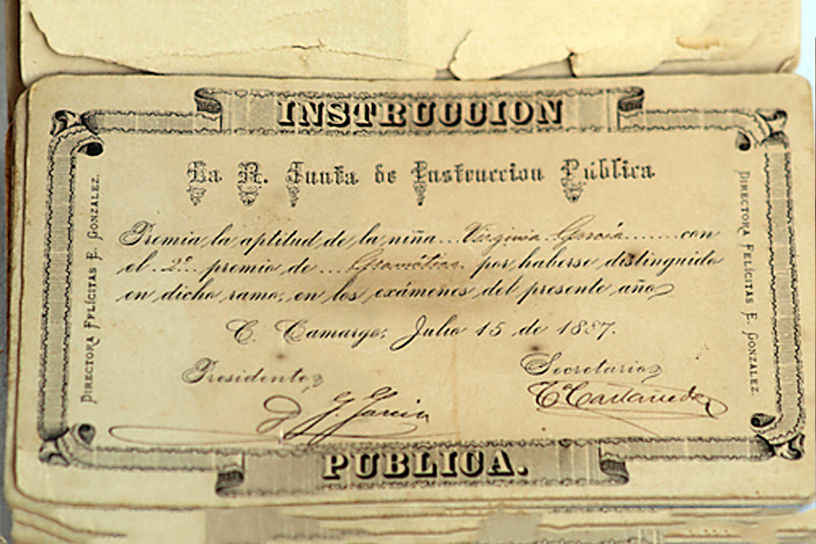 INSTRUCCION
La R. Junta de Instruccion Pública
Premia, la aptitud de la niña... Virginia Garcia ........ con
el 2º... premio de .... Gramática por haberse distinguido
en dicho ramo, en los exámenes del presente año
C. Camargo, Julio 15 de 1887.
Presidente,
Secretario,
J. Garcia
Castañeda
PUBLICA.
DIRECTORA FELÍCITAS E. GONZALEZ.
DIRECTORA FELÍCITAS E. GONZALEZ.